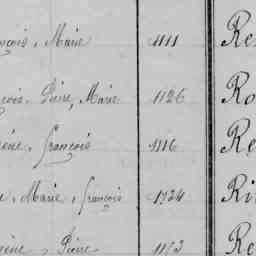 nçois, Marie 1111 Re
nçois, Pierre, Marie 1126 Ro
éné, françois 1116 Re
e, Marie, françois 1734 Ri
éné, Pierre 1113 Re